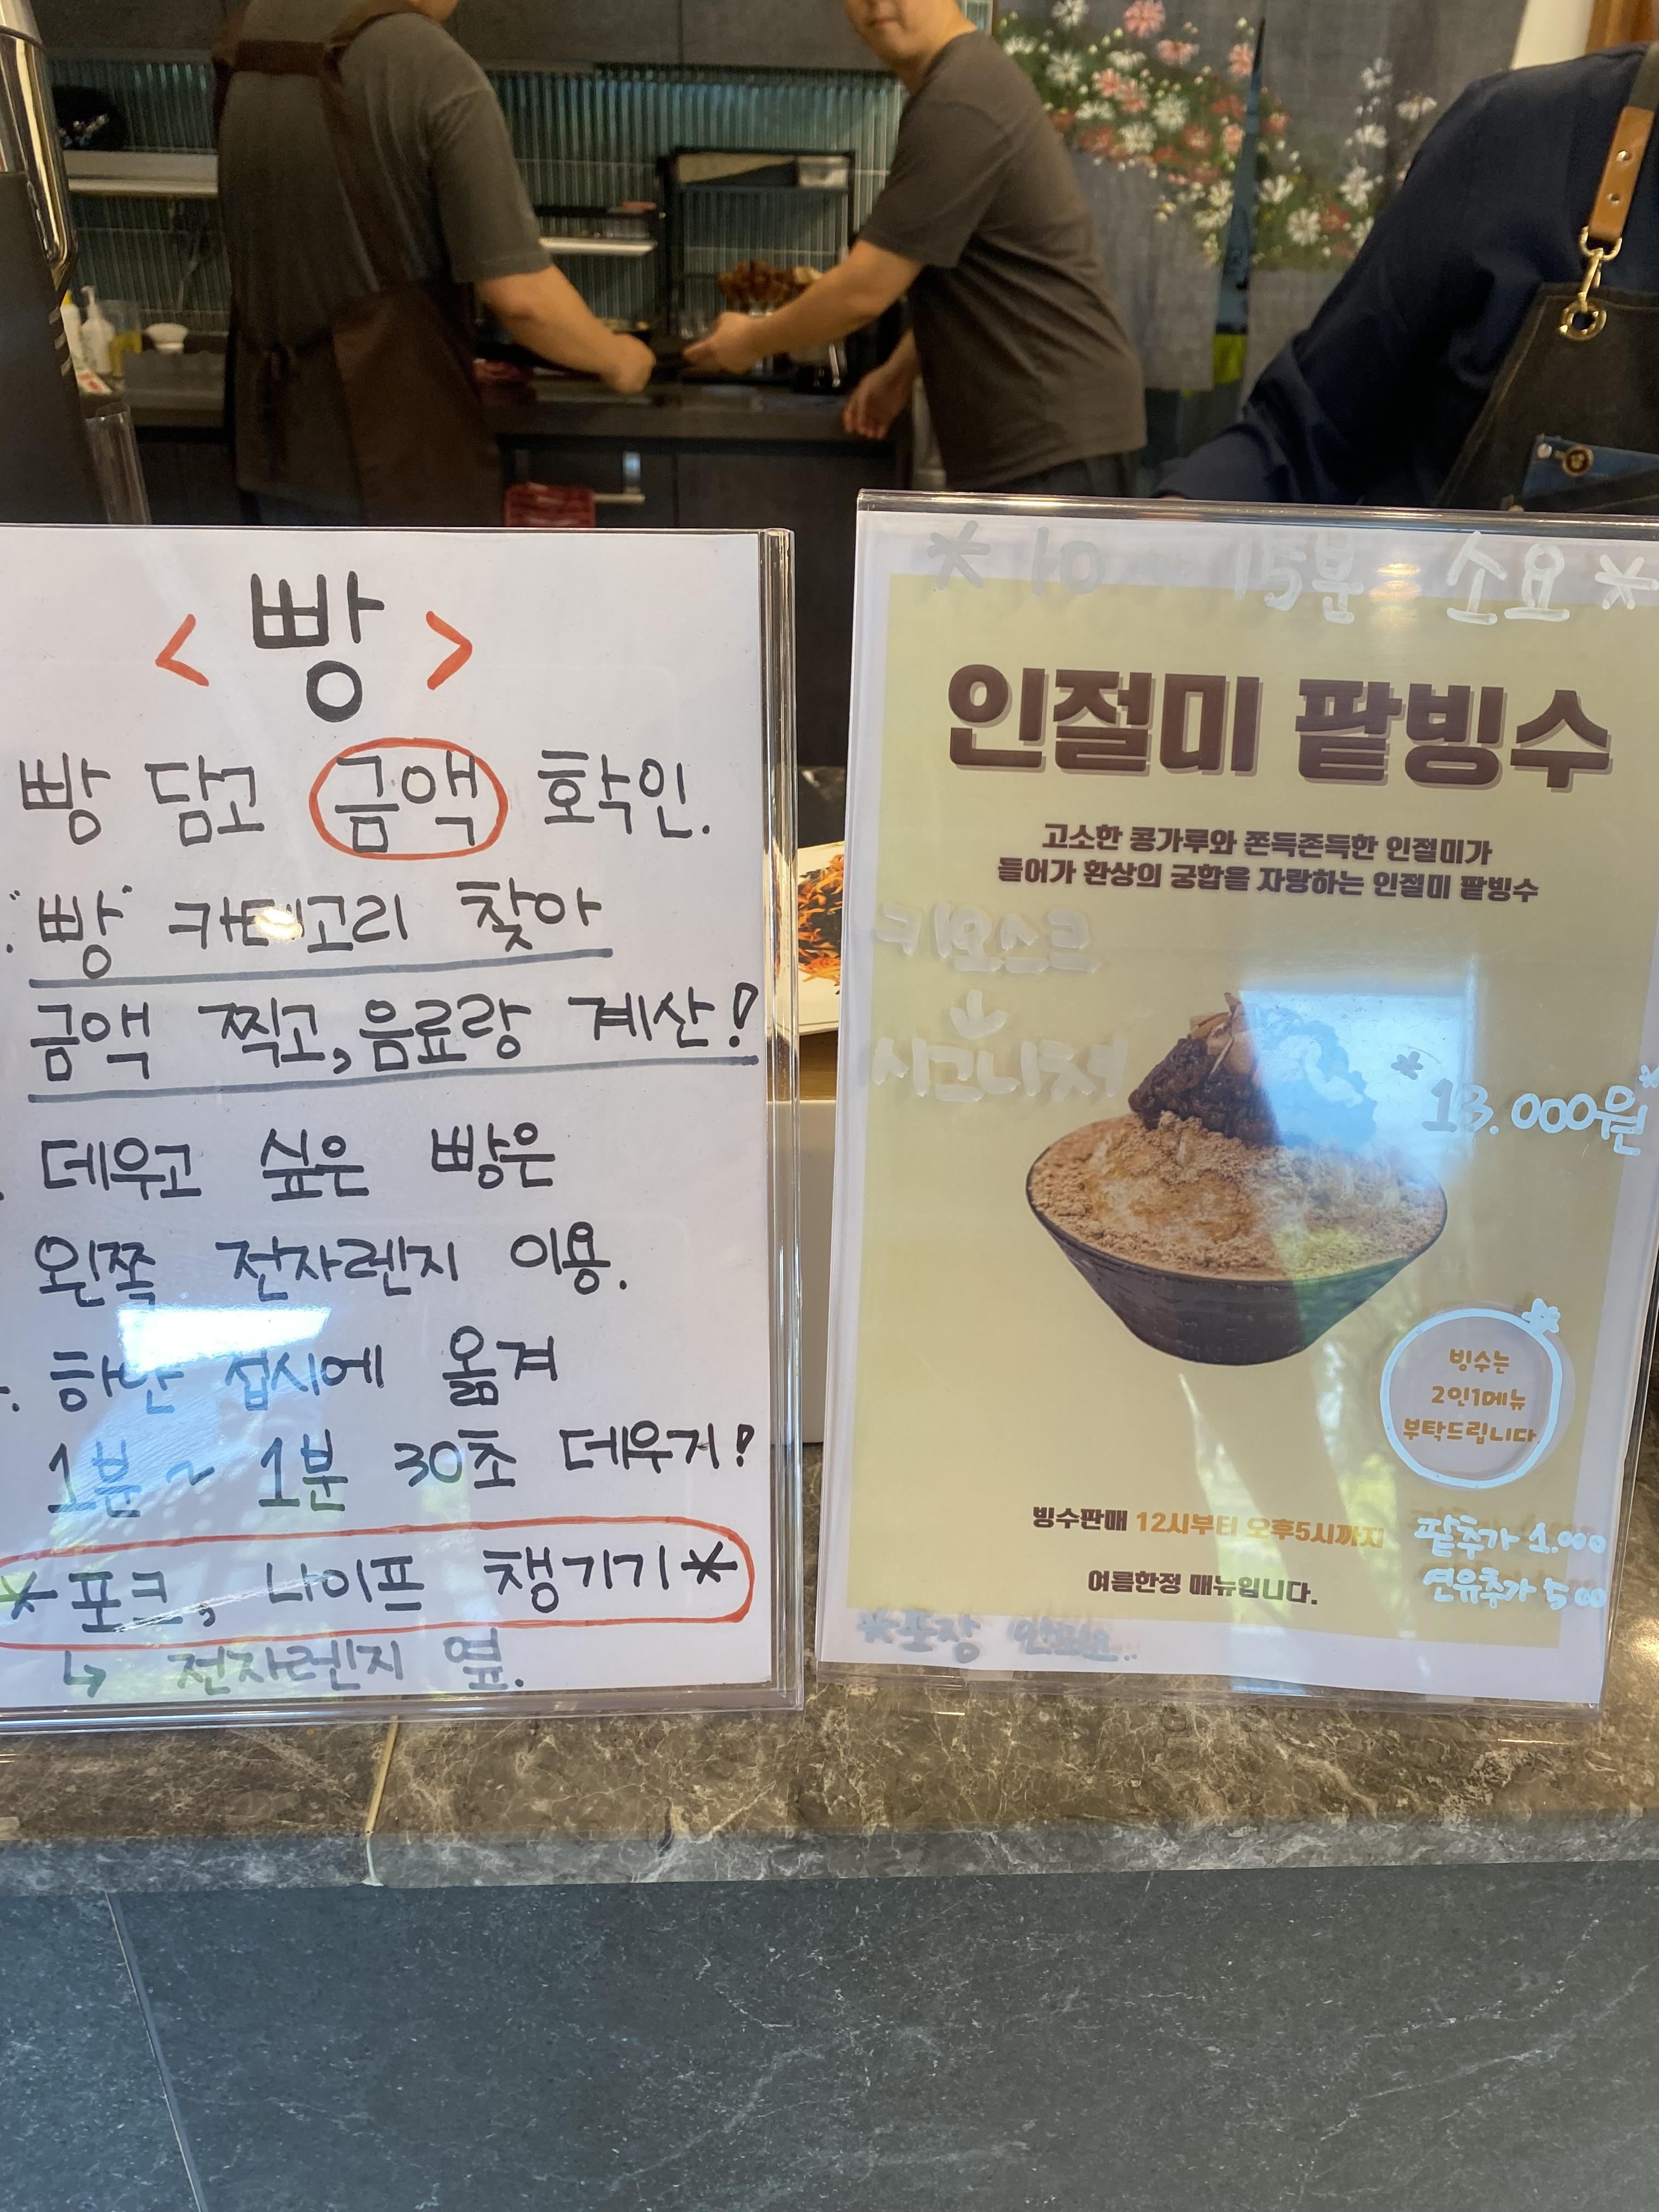 < 빵 >
빵 담고 금액 확인.
"빵" 카테고리 찾아
금액 찍고, 음료랑 계산!
데우고 싶은 빵은
왼쪽 전자렌지 이용.
하얀 접시에 옮겨
1분 ~ 1분 30초 데우기!
*포크, 나이프 챙기기*
↳ 전자렌지 옆.
* 10 ~ 15분 소요 *
인절미 팥빙수
고소한 콩가루와 쫀득존득한 인절미가
들어가 환상의 궁합을 자랑하는 인절미 팥빙수
키오스크
↓
시그니처
*13.000원*
빙수는
2인1메뉴
부탁드립니다
빙수판매 12시부터 오후5시까지
여름한정 메뉴입니다.
팥추가 1.000
연유추가 500
*포장 안돼요..